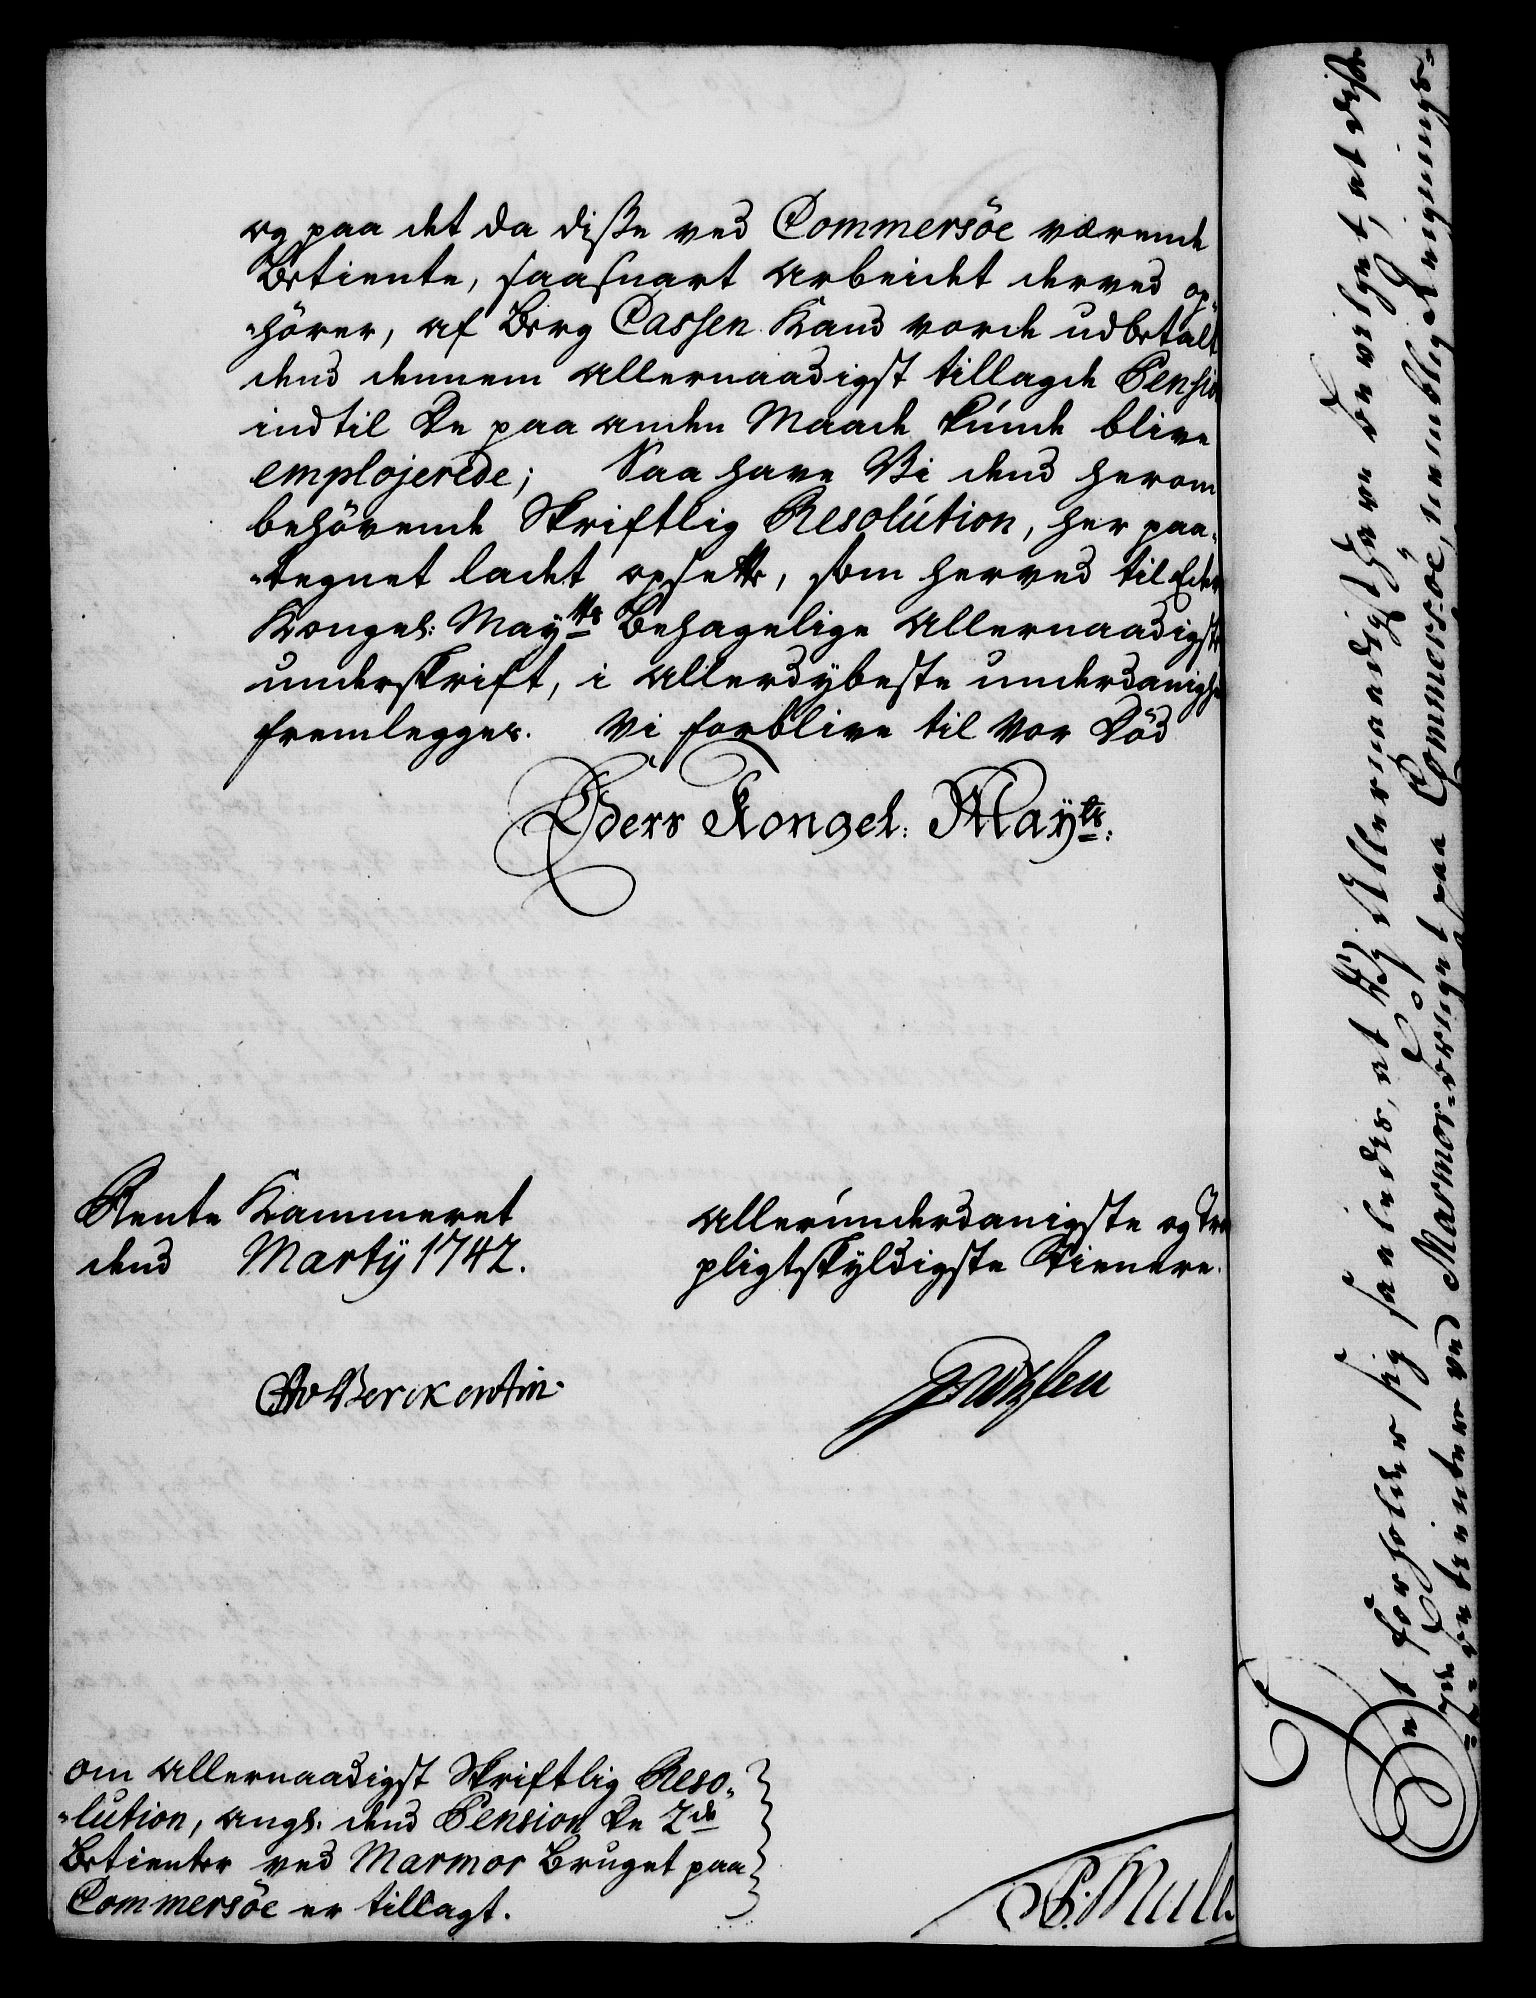 og paa det da disse ved Commersöe værende
Betiente, saasnart Arbeidet derved op-
-hörer, af Berg Cassen Kand vorde udbetalt
dend dennem Allernaadigst tillagde Pensio
indtil De paa anden Maade kunde blive
emplojerede; Saa have Vi dend herom
behövende Skriftlig Resolution, her paa-
-tegnet ladet opsette, som herved til Eders
Kongel: Mayts Behagelige Allernaadigste
underskrift, i Allerdybeste underdanighed
fremlegges. Vi forblive til vor Död
Eders Kongel: Mayts:
Rente Kammeret
dend Martÿ 1742.
Allerunderdanigste og Troe
pligtskyldigste Tienere.
CAvBerckentin.
om Allernaadigst Skriftlig Reso-
-lution, angl. dend Pension De 2de
Betienter ved Marmor Bruget paa
Commersöe er tillagt.
P. Mull
Det forholder sig saaledes, at Vi Allernaadigst have bevilget, at disse
2de Betientere ved Marmor-Bruget paa Commersöe, nemblig Reignings-